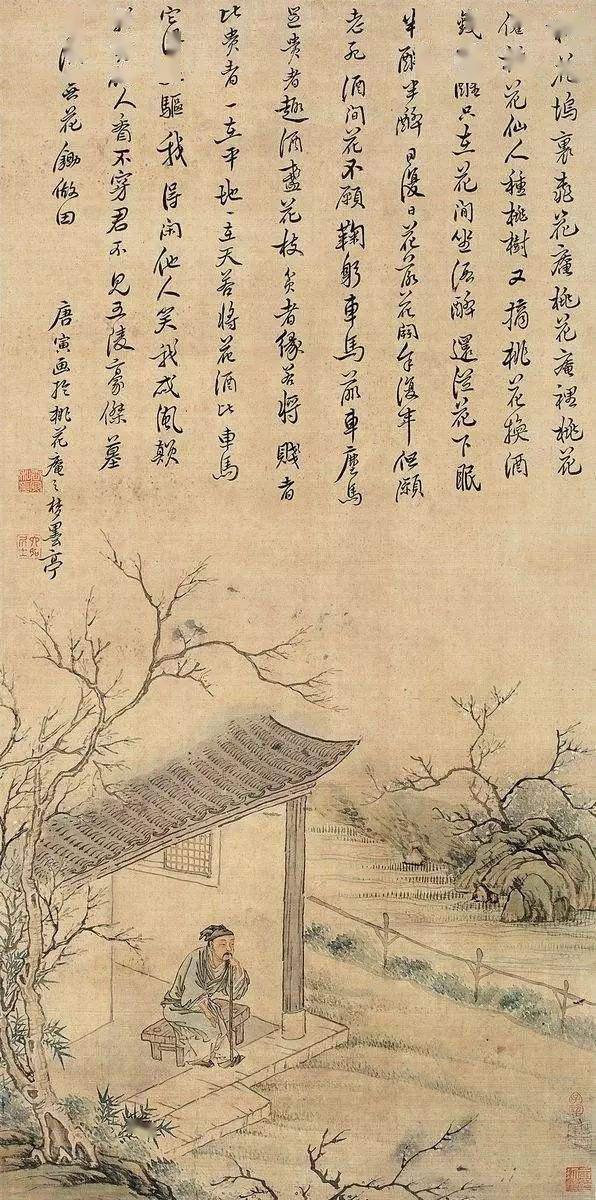 花塢裏桃花庵桃花庵裡桃花
花仙人種桃樹又摘桃花換酒
只在花間坐酒醉還從花下眠
半醒半醉日復日花落花開年復年但願
老死酒間花不願鞠躬車馬前車塵馬
足貴者趣酒盞花枝貧者緣若將賤者
比貴者一在平地一在天若將花酒比車馬
驅我得閑他人笑我風顛
人看不穿君不見五陵豪傑墓
無花鋤做田
唐寅画於桃花庵之梦墨亭